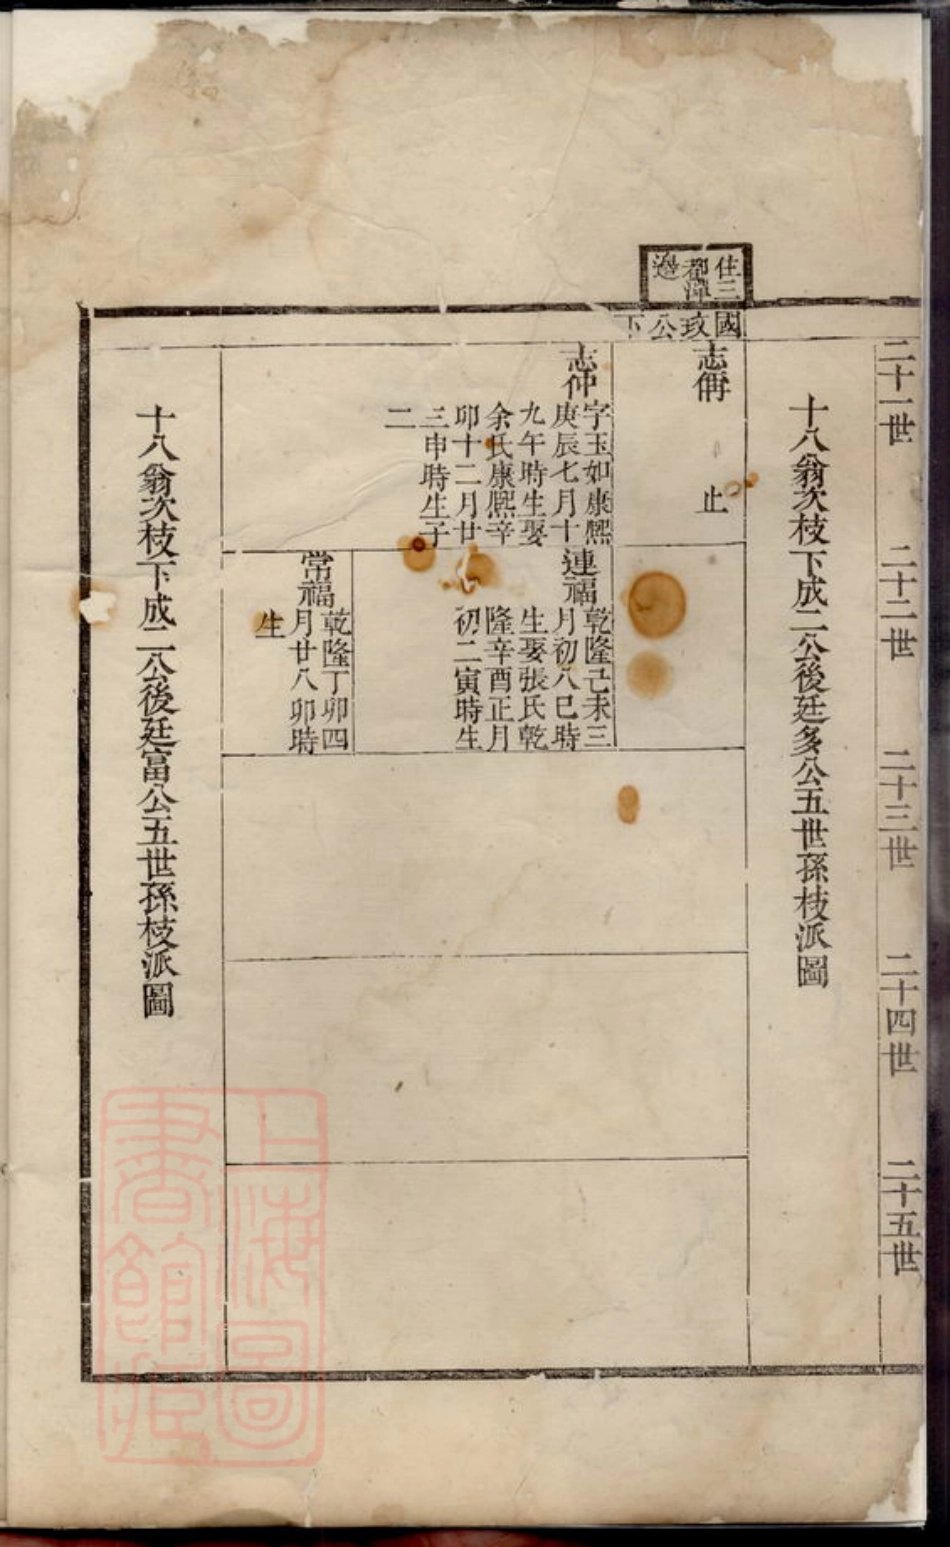 二十一世
二十二世
二十三世
二十四世
二十五世
十八翁次枝下成二公後廷多公五世孫枝派圖
住三
都潭
邊
國玫公下
志侢
止
志仲
字玉如康熙
庚辰七月十
九午時生娶
余氏康熙辛
卯十二月廿
三申時生子
二
連福
乾隆己未三
月初八巳時
生娶張氏乾
隆辛酉正月
初二寅時生
常福
乾隆丁卯四
月廿八卯時
生
十八翁次枝下成二公後廷富公五世孫枝派圖
上海圖
書館藏